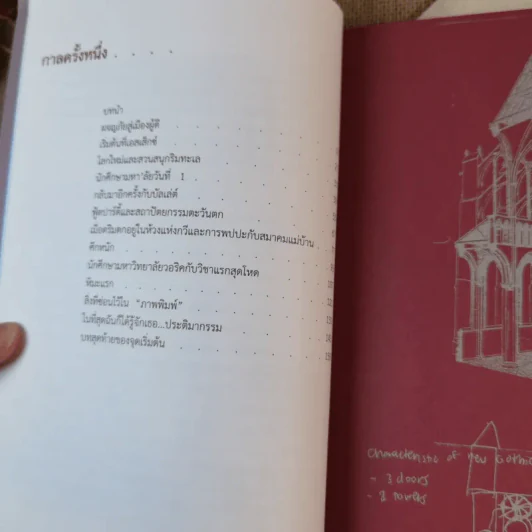 กาลครั้งหนึ่ง . . . .
บทนำ
ผจญภัยสู่เมืองผู้ดี
เริ่มต้นที่เอสเส็กซ์
โลกใหม่และสวนสนุกริมทะเล
นักศึกษามหา'ลัยวันที่ 1
กลับมาอีกครั้งกับบัลเล่ต์
ฟู้ดปาร์ตี้และสถาปัตยกรรมตะวันตก
เมื่อดริมตกอยู่ในห้วงแห่งกวีและการพบปะกับสมาคมแม่บ้าน
ศึกหนัก
นักศึกษามหาวิทยาลัยวอริคกับวิชาแรกสุดโหด
หิมะแรก
สิ่งที่ซ่อนไว้ใน "ภาพพิมพ์"
ในที่สุดฉันก็ได้รู้จักเธอ...ประติมากรรม
บทสุดท้ายของจุดเริ่มต้น
characteristic of new Gothic
- 3 doors
- 2 towers